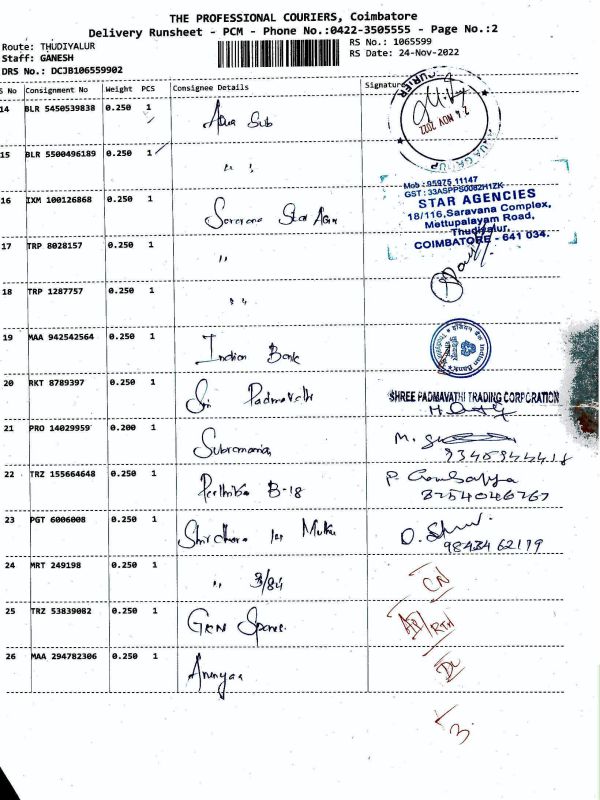 THE PROFESSIONAL COURIERS, Coimbatore
Delivery Runsheet - PCM - Phone No.:0422-3505555 - Page No.:2
Route: THUDIYALUR
Staff: GANESH
DRS No.: DCJB106559902
RS No.: 1065599
RS Date: 24-Nov-2022
S No Consignment No Weight PCS Consignee Details Signature
14 BLR 5450539838 0.250 1 Aqua Sub
COURIER
24 NOV 2022
AQUA GROUP
15 BLR 5500496189 0.250 1 " "
16 IXM 100126868 0.250 1 Star
Mob : 95975 11147
GST : 33ASPPS0082H1ZK
STAR AGENCIES
18/116, Saravana Complex,
Mettupalayam Road,
Thudiyalur,
COIMBATORE - 641 034.
17 TRP 8028157 0.250 1 "
18 TRP 1287757 0.250 1 " "
19 MAA 942542564 0.250 1 Indian Bank
Indian Bank
20 RKT 8789397 0.250 1 Sri Padmavathi
SHREE PADMAVATHI TRADING CORPORATION
21 PRO 14029959 0.200 1 Subramania
M.
22 TRZ 155664648 0.250 1 B-18
P.
23 PGT 6006008 0.250 1
D.
9843462179
24 MRT 249198 0.250 1 " 3/84
CN
25 TRZ 53839082 0.250 1 GKN Spares
RTH
26 MAA 294782306 0.250 1
DL
3.